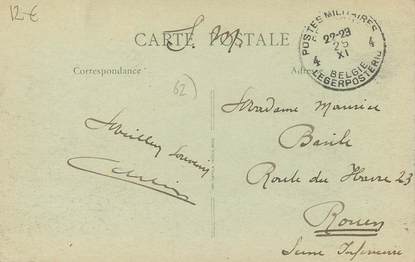 12 €
CARTE POSTALE
S. M.
Correspondance
62
POSTES MILITAIRES
22-23
25
XI
4 4
BELGIE
LEGERPOSTERIJ
Meilleur Souvenir
Madame Maurice
Basile
Route du Havre 23
Rouen
Seine Inférieure